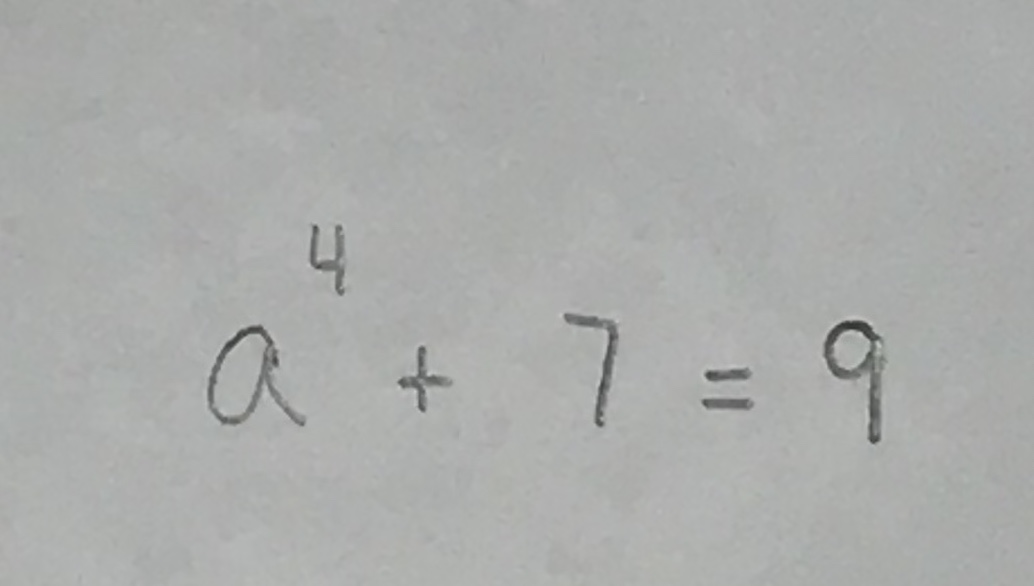 a⁴ + 7 = 9